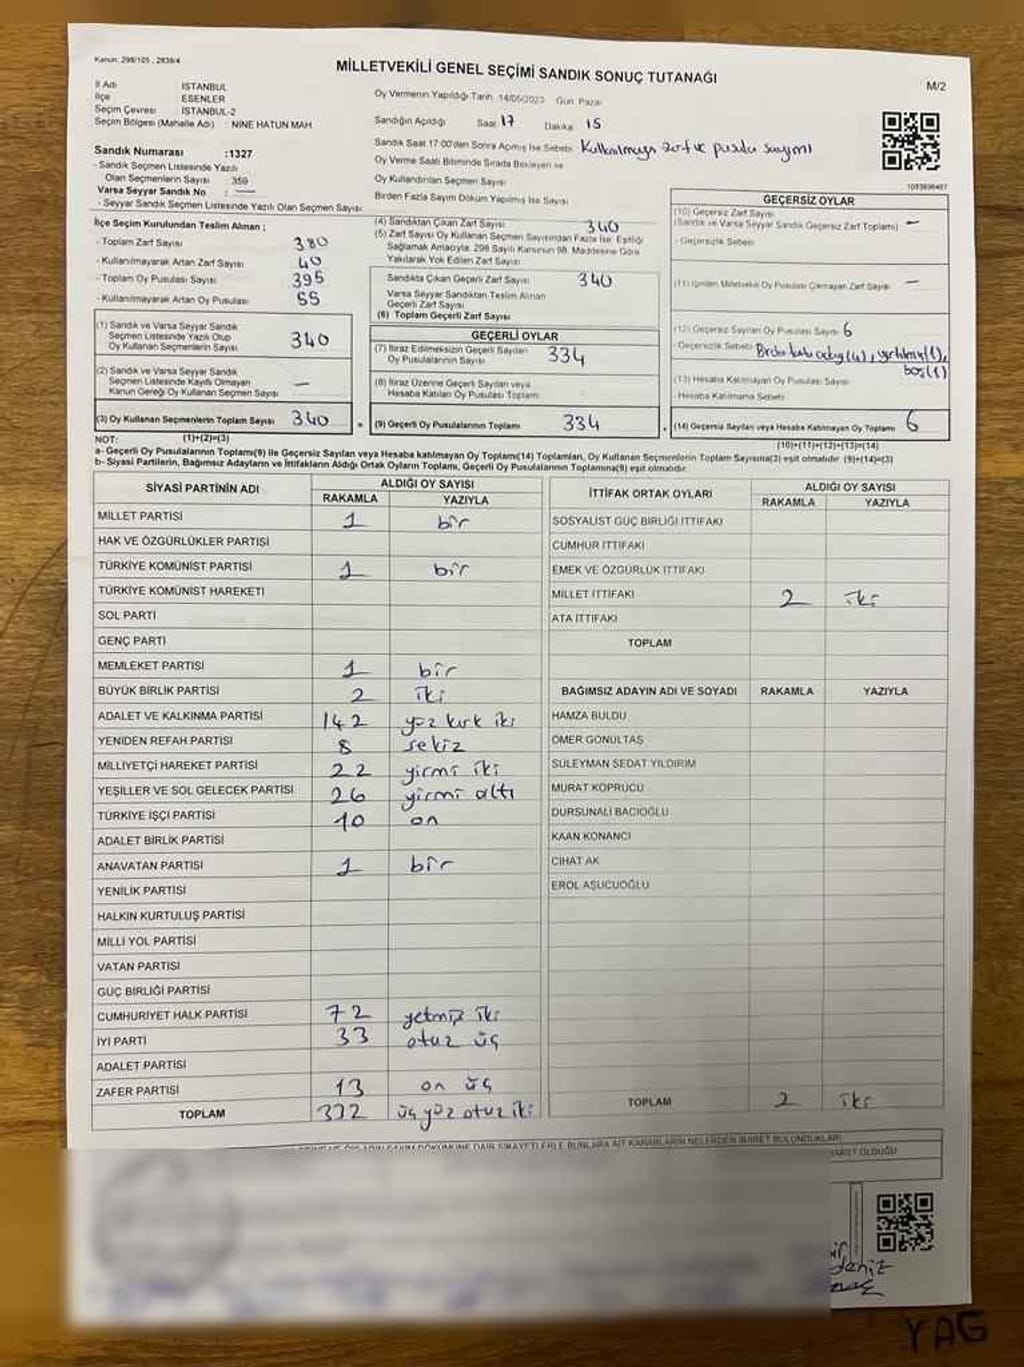 Kanun. 298/105 , 2839/4
MİLLETVEKİLİ GENEL SEÇİMİ SANDIK SONUÇ TUTANAĞI
M/2
İl Adı İSTANBUL
İlçe ESENLER
Seçim Çevresi İSTANBUL-2
Seçim Bölgesi (Mahalle Adı) : NİNE HATUN MAH
Sandık Numarası :1327
- Sandık Seçmen Listesinde Yazılı
Olan Seçmenlerin Sayısı : 359
Varsa Seyyar Sandık No : —
- Seyyar Sandık Seçmen Listesinde Yazılı Olan Seçmen Sayısı:
Oy Vermenin Yapıldığı Tarih 14/05/2023 Gün. Pazar
Sandığın Açıldığı Saat 17 Dakika 15
Sandık Saat 17:00'den Sonra Açılmış İse Sebebi Kullanılmayan zarf ve pusula sayımı
Oy Verme Saati Bitiminde Sırada Bekleyen ve
Oy Kullandırılan Seçmen Sayısı
Birden Fazla Sayım Döküm Yapılmış İse Sayısı
1083696467
İlçe Seçim Kurulundan Teslim Alınan ;
- Toplam Zarf Sayısı 380
- Kullanılmayarak Artan Zarf Sayısı 40
- Toplam Oy Pusulası Sayısı 395
- Kullanılmayarak Artan Oy Pusulası 55
(1) Sandık ve Varsa Seyyar Sandık
Seçmen Listesinde Yazılı Olup
Oy Kullanan Seçmenlerin Sayısı 340
(2) Sandık ve Varsa Seyyar Sandık
Seçmen Listesinde Kayıtlı Olmayan
Kanun Gereği Oy Kullanan Seçmen Sayısı —
(3) Oy Kullanan Seçmenlerin Toplam Sayısı 340
(1)+(2)=(3)
(4) Sandıktan Çıkan Zarf Sayısı 340
(5) Zarf Sayısı Oy Kullanan Seçmen Sayısından Fazla İse, Eşitliği
Sağlamak Amacıyla, 298 Sayılı Kanunun 98. Maddesine Göre
Yakılarak Yok Edilen Zarf Sayısı
Sandıkta Çıkan Geçerli Zarf Sayısı 340
Varsa Seyyar Sandıktan Teslim Alınan
Geçerli Zarf Sayısı
(6) Toplam Geçerli Zarf Sayısı
GEÇERLİ OYLAR
(7) İtiraz Edilmeksizin Geçerli Sayılan
Oy Pusulalarının Sayısı 334
(8) İtiraz Üzerine Geçerli Sayılan veya
Hesaba Katılan Oy Pusulası Toplamı
(9) Geçerli Oy Pusulalarının Toplamı 334
GEÇERSİZ OYLAR
(10) Geçersiz Zarf Sayısı
(Sandık ve Varsa Seyyar Sandık Geçersiz Zarf Toplamı) —
- Geçersizlik Sebebi
(11) İçinden Milletvekili Oy Pusulası Çıkmayan Zarf Sayısı —
(12) Geçersiz Sayılan Oy Pusulası Sayısı 6
- Geçersizlik Sebebi Birden fazla aday (4), yırtılmış (1),
boş (1)
(13) Hesaba Katılmayan Oy Pusulası Sayısı
- Hesaba Katılmama Sebebi
(14) Geçersiz Sayılan veya Hesaba Katılmayan Oy Toplamı 6
(10)+(11)+(12)+(13)=(14)
NOT:
a- Geçerli Oy Pusulalarının Toplamı(9) ile Geçersiz Sayılan veya Hesaba katılmayan Oy Toplamı(14) Toplamları, Oy Kullanan Seçmenlerin Toplam Sayısına(3) eşit olmalıdır. (9)+(14)=(3)
b- Siyasi Partilerin, Bağımsız Adayların ve İttifakların Aldığı Ortak Oyların Toplamı, Geçerli Oy Pusulalarının Toplamına(9) eşit olmalıdır
SİYASİ PARTİNİN ADI ALDIĞI OY SAYISI
RAKAMLA YAZIYLA
MİLLET PARTİSİ 1 bir
HAK VE ÖZGÜRLÜKLER PARTİSİ
TÜRKİYE KOMÜNİST PARTİSİ 1 bir
TÜRKİYE KOMÜNİST HAREKETİ
SOL PARTİ
GENÇ PARTİ
MEMLEKET PARTİSİ 1 bir
BÜYÜK BİRLİK PARTİSİ 2 iki
ADALET VE KALKINMA PARTİSİ 142 yüz kırk iki
YENİDEN REFAH PARTİSİ 8 sekiz
MİLLİYETÇİ HAREKET PARTİSİ 22 yirmi iki
YEŞİLLER VE SOL GELECEK PARTİSİ 26 yirmi altı
TÜRKİYE İŞÇİ PARTİSİ 10 on
ADALET BİRLİK PARTİSİ
ANAVATAN PARTİSİ 1 bir
YENİLİK PARTİSİ
HALKIN KURTULUŞ PARTİSİ
MİLLİ YOL PARTİSİ
VATAN PARTİSİ
GÜÇ BİRLİĞİ PARTİSİ
CUMHURİYET HALK PARTİSİ 72 yetmiş iki
İYİ PARTİ 33 otuz üç
ADALET PARTİSİ
ZAFER PARTİSİ 13 on üç
TOPLAM 332 üç yüz otuz iki
İTTİFAK ORTAK OYLARI ALDIĞI OY SAYISI
RAKAMLA YAZIYLA
SOSYALİST GÜÇ BİRLİĞİ İTTİFAKI
CUMHUR İTTİFAKI
EMEK VE ÖZGÜRLÜK İTTİFAKI
MİLLET İTTİFAKI 2 iki
ATA İTTİFAKI
TOPLAM
BAĞIMSIZ ADAYIN ADI VE SOYADI RAKAMLA YAZIYLA
HAMZA BULDU
ÖMER GÖNÜLTAŞ
SÜLEYMAN SEDAT YILDIRIM
MURAT KÖPRÜCÜ
DURSUNALİ BACIOĞLU
KAAN KONANCI
CİHAT AK
EROL AŞUCUOĞLU
TOPLAM 2 iki
deniz
YAG